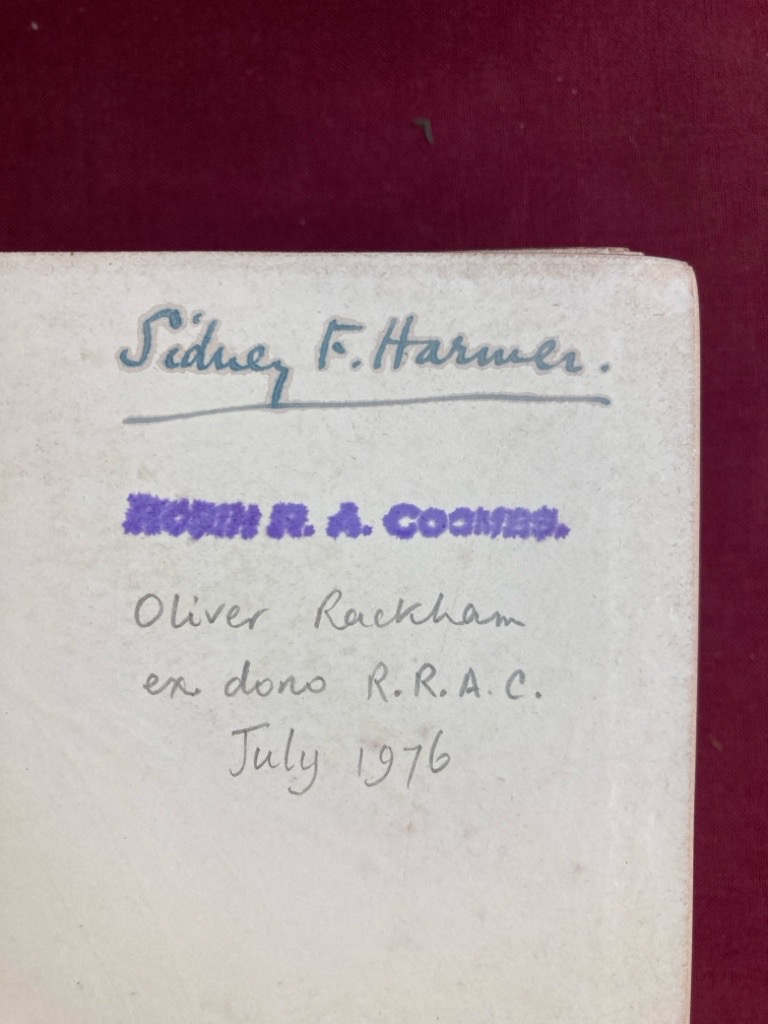 Sidney F. Harmer.
ROBIN R. A. COOMBS.
Oliver Rackham
ex dono R.R.A.C.
July 1976